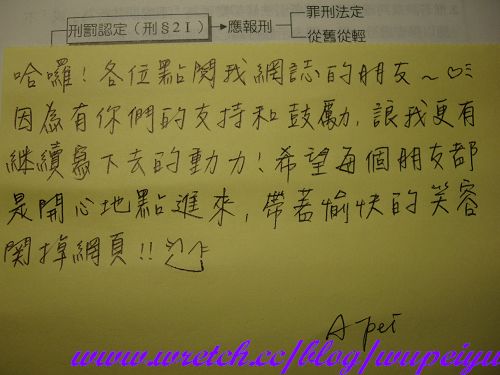 刑罰認定（刑§2I）
應報刑
罪刑法定
從舊從輕
哈囉！各位點閱我網誌的朋友～
因為有你們的支持和鼓勵，讓我更有
繼續寫下去的動力！希望每個朋友都
是開心地點進來，帶著愉快的笑容
関掉網頁！！
A pei
www.wretch.cc/blog/wupeiyu